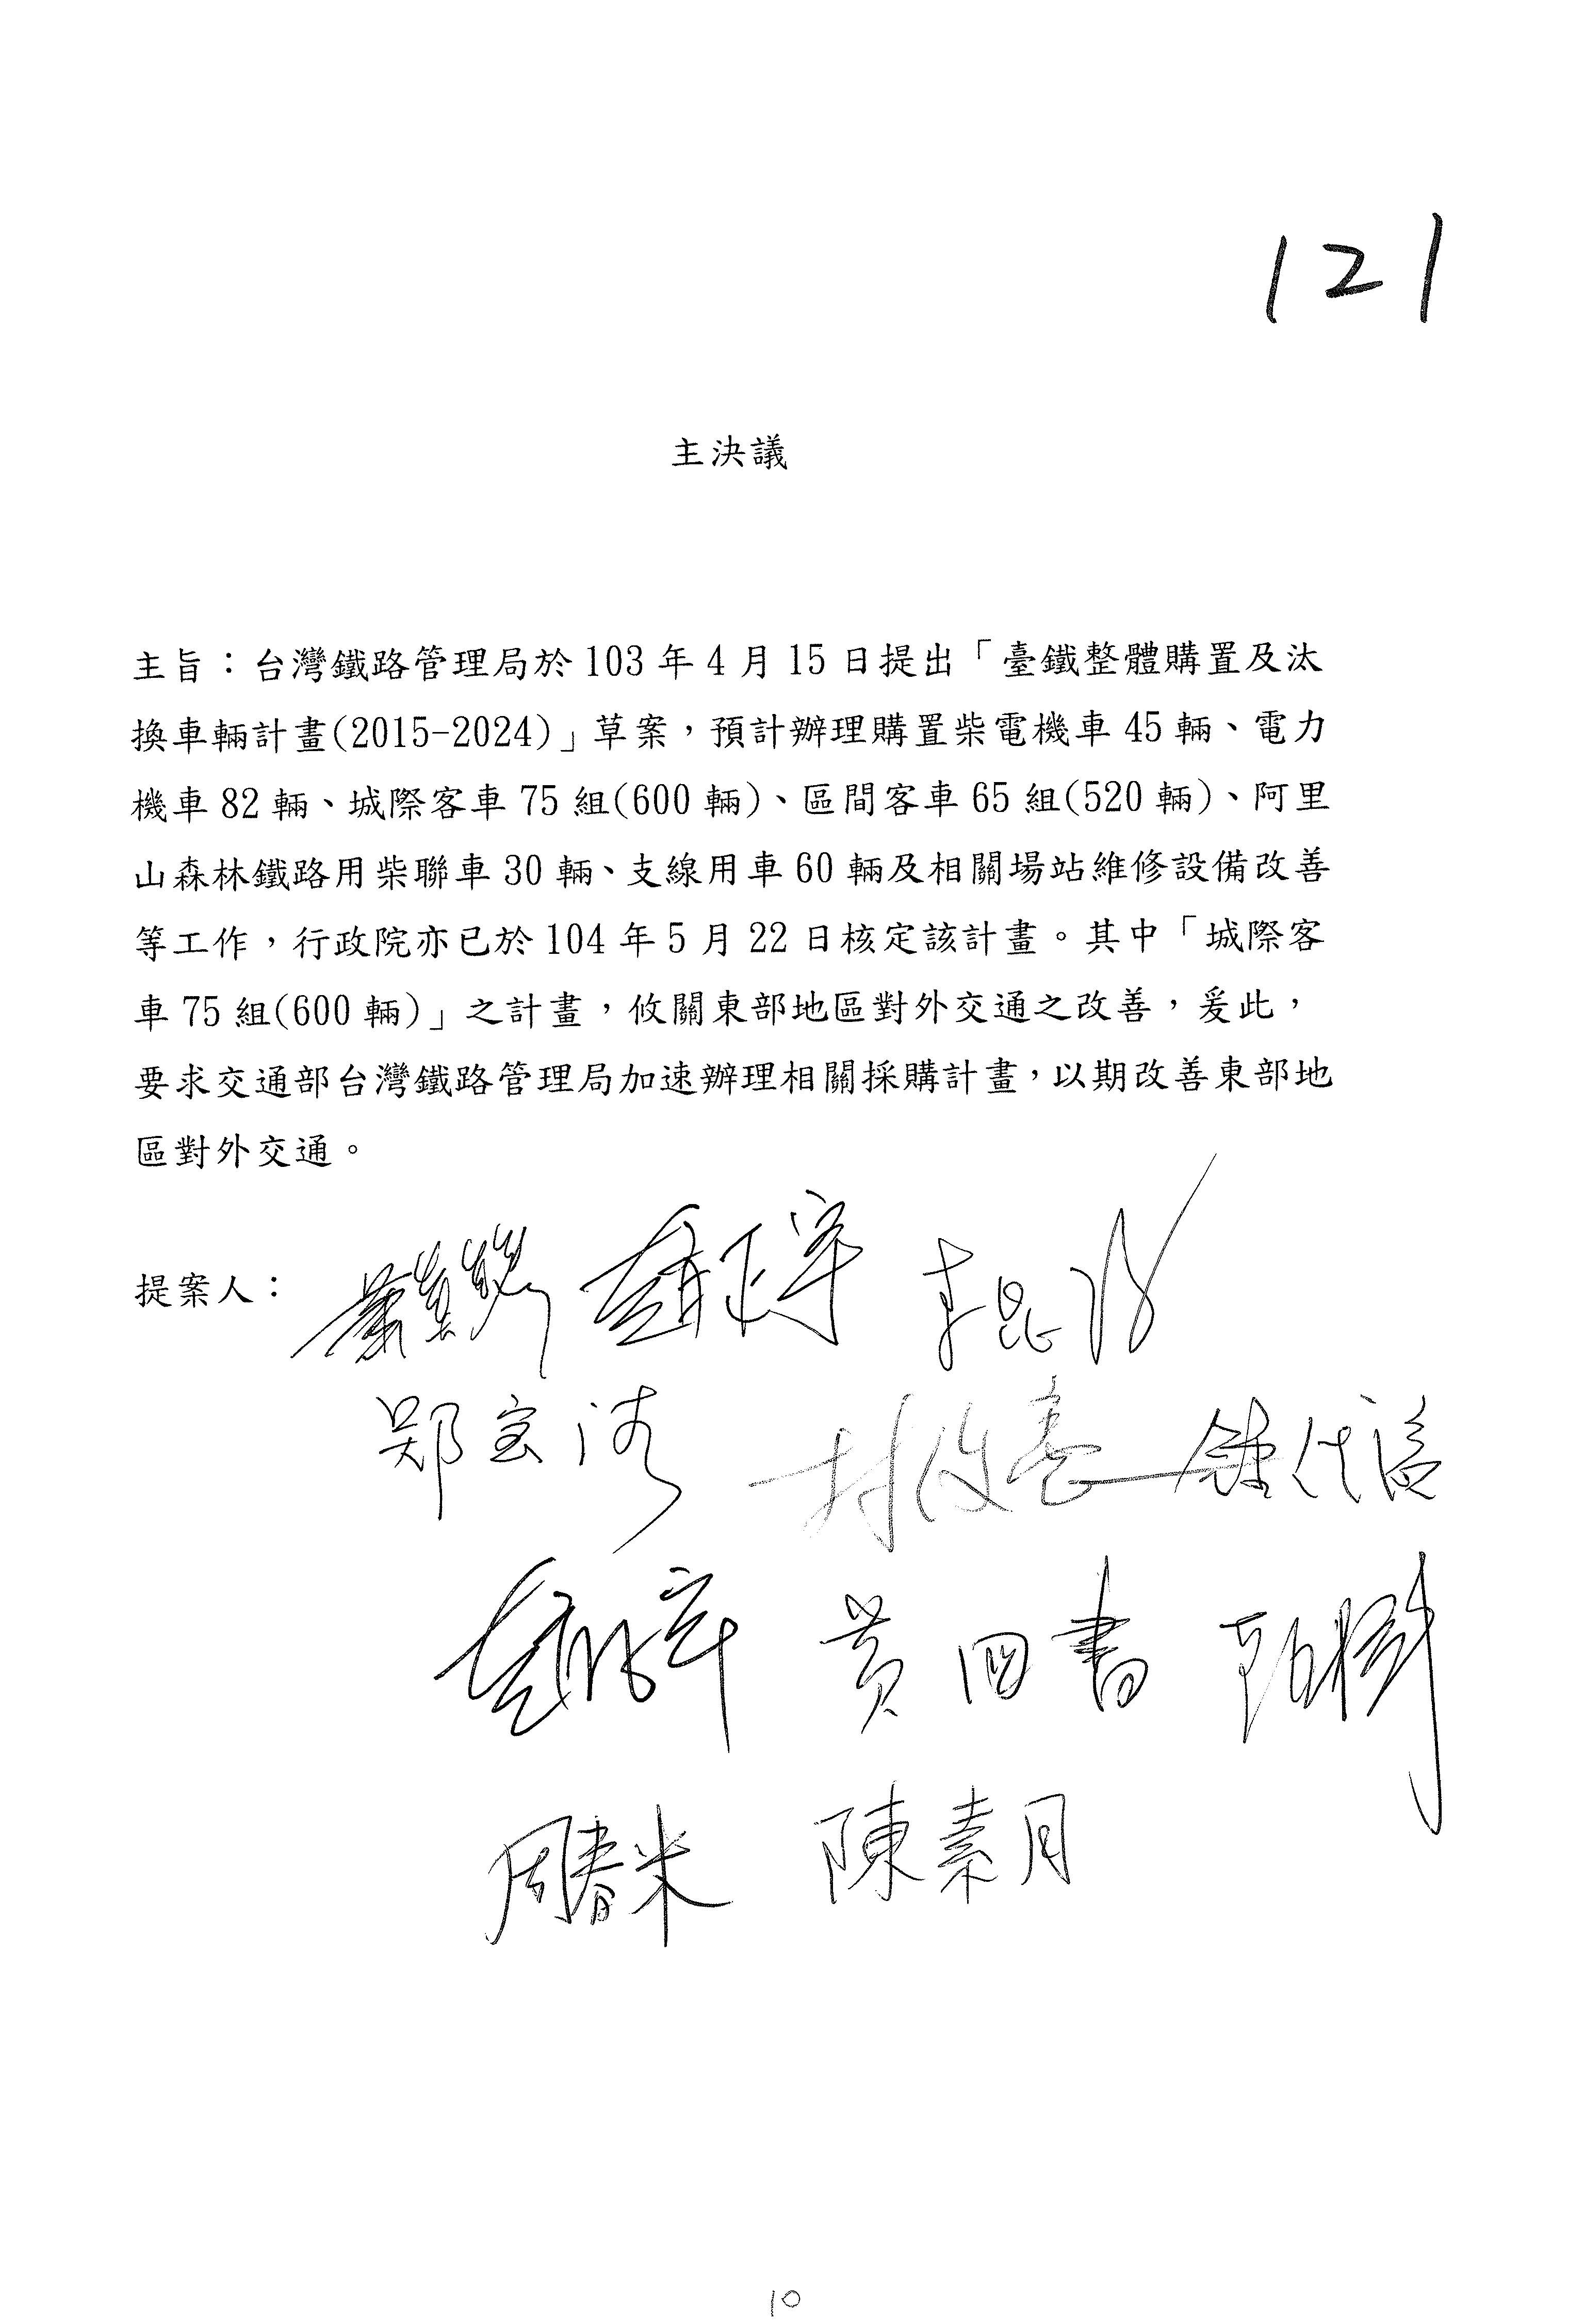 121
主決議
主旨：台灣鐵路管理局於 103 年 4 月 15 日提出「臺鐵整體購置及汰
換車輛計畫(2015-2024)」草案，預計辦理購置柴電機車 45 輛、電力
機車 82 輛、城際客車 75 組(600 輛)、區間客車 65 組(520 輛)、阿里
山森林鐵路用柴聯車 30 輛、支線用車 60 輛及相關場站維修設備改善
等工作，行政院亦已於 104 年 5 月 22 日核定該計畫。其中「城際客
車 75 組(600 輛)」之計畫，攸關東部地區對外交通之改善，爰此，
要求交通部台灣鐵路管理局加速辦理相關採購計畫，以期改善東部地
區對外交通。
提案人：
郑宝清
周春米 陳素月
10